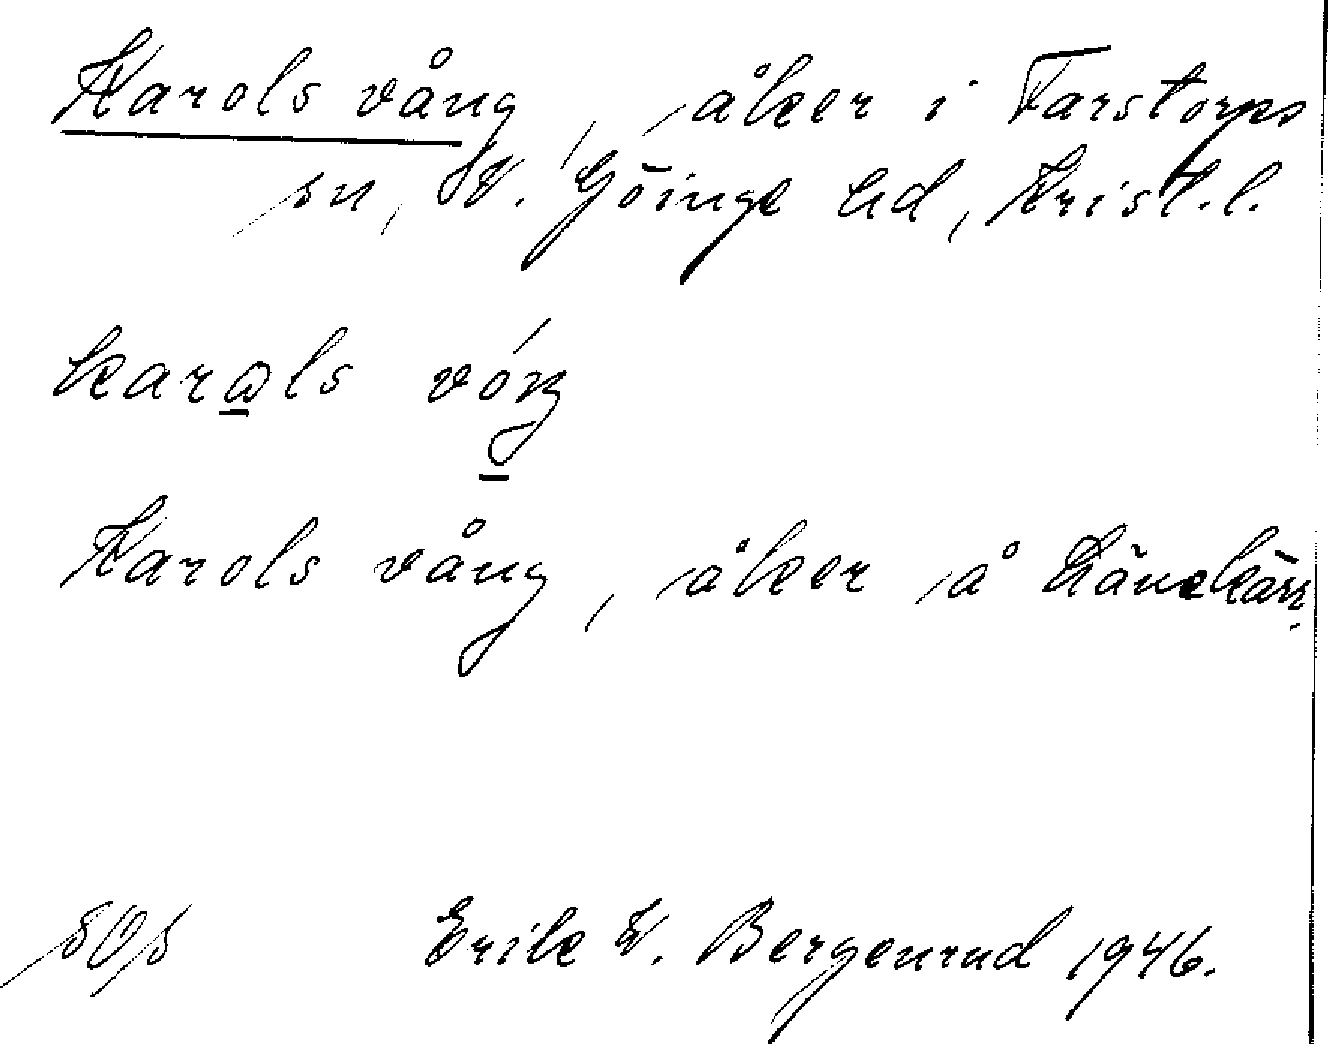 Karols vång, åker i Farstorps
sn, V. Göinge hd, Krist. l.
karɷls vóŋ
Karols vång, åker å
Erik V. Bergenrud 1946.